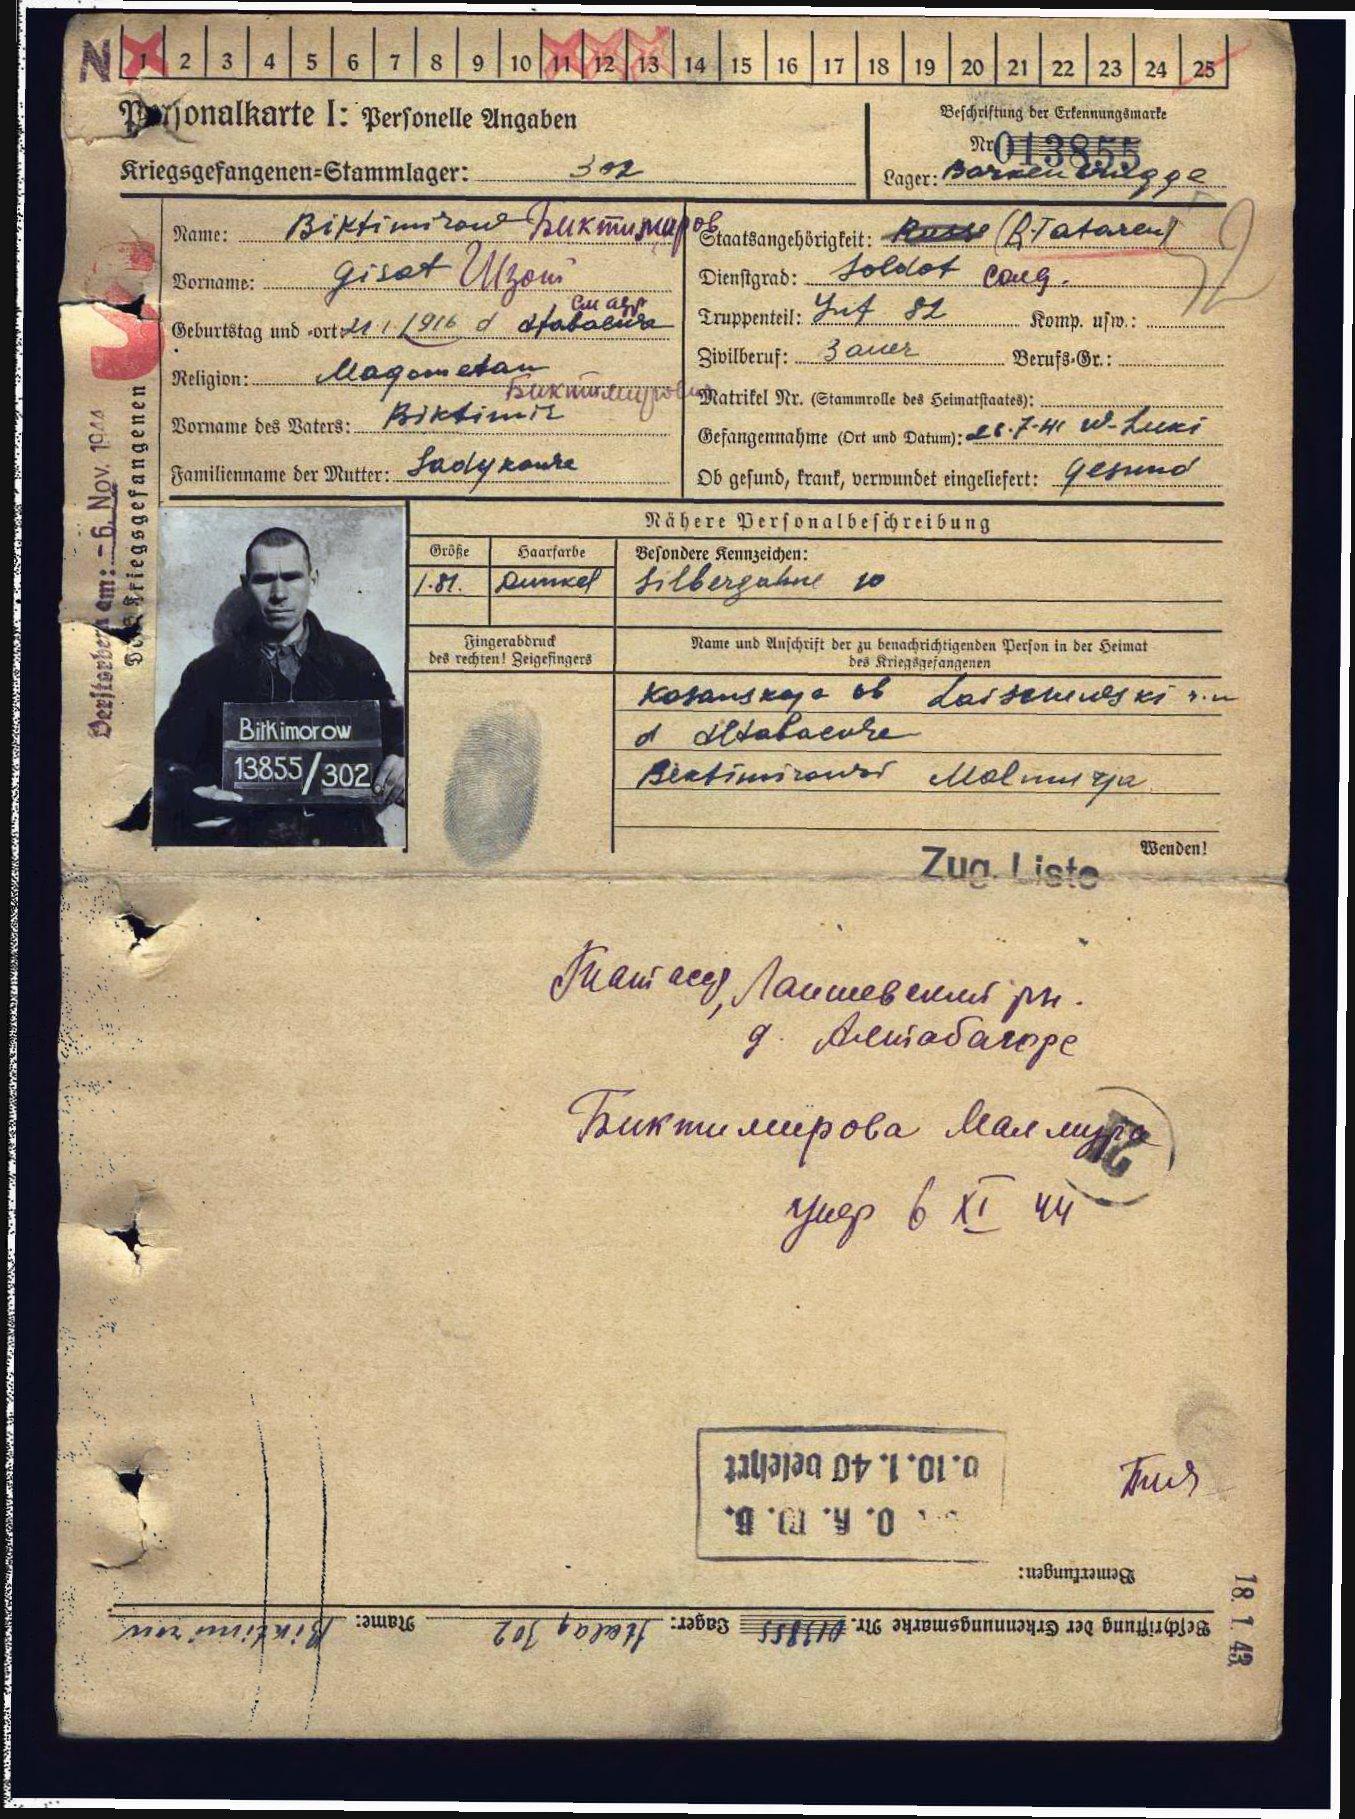 N 1 2 3 4 5 6 7 8 9 10 11 12 13 14 15 16 17 18 19 20 21 22 23 24 25
Personalkarte I: Personelle Angaben
Beschriftung der Erkennungsmarke
Nr. 013855
Kriegsgefangenen-Stammlager: 302
Lager: Barkenbrügge
Name: Biktimirow Биктимиров
Vorname: Gisat
Geburtstag und -ort: 21.1.1916 d
см адр
Religion: Magometan
Vorname des Vaters: Biktimir
Familienname der Mutter:
Staatsangehörigkeit: Russe (R.Tataren)
Dienstgrad: Soldat солд.
Truppenteil: Inf 82 Komp. usw.:
Zivilberuf: Bauer Berufs-Gr.:
Matrikel Nr. (Stammrolle des Heimatstaates):
Gefangennahme (Ort und Datum): 26.7.41 W-Luki
Ob gesund, krank, verwundet eingeliefert: gesund
Verstorben am: -6. Nov. 1944
Des Kriegsgefangenen
BitKimorow
13855/302
Nähere Personalbeschreibung
Größe Haarfarbe Besondere Kennzeichen:
1.81. Dunkel Silberzahne 10
Fingerabdruck
des rechten! Zeigefingers
Name und Anschrift der zu benachrichtigenden Person in der Heimat
des Kriegsgefangenen
Kasanskaja ob Laischewski
d
Biktimirowa
Wenden!
Zug. Liste
Тат асср, Лаишевский рн.
д.
Биктимирова
21
умер 6 XI 44
O. K. W. B.
v. 10. 1. 40 belehrt
Bemerkungen:
Beschriftung der Erkennungsmarke Nr. 013855 Lager: Stalag 302 Name: Biktimirow
18. 1. 43